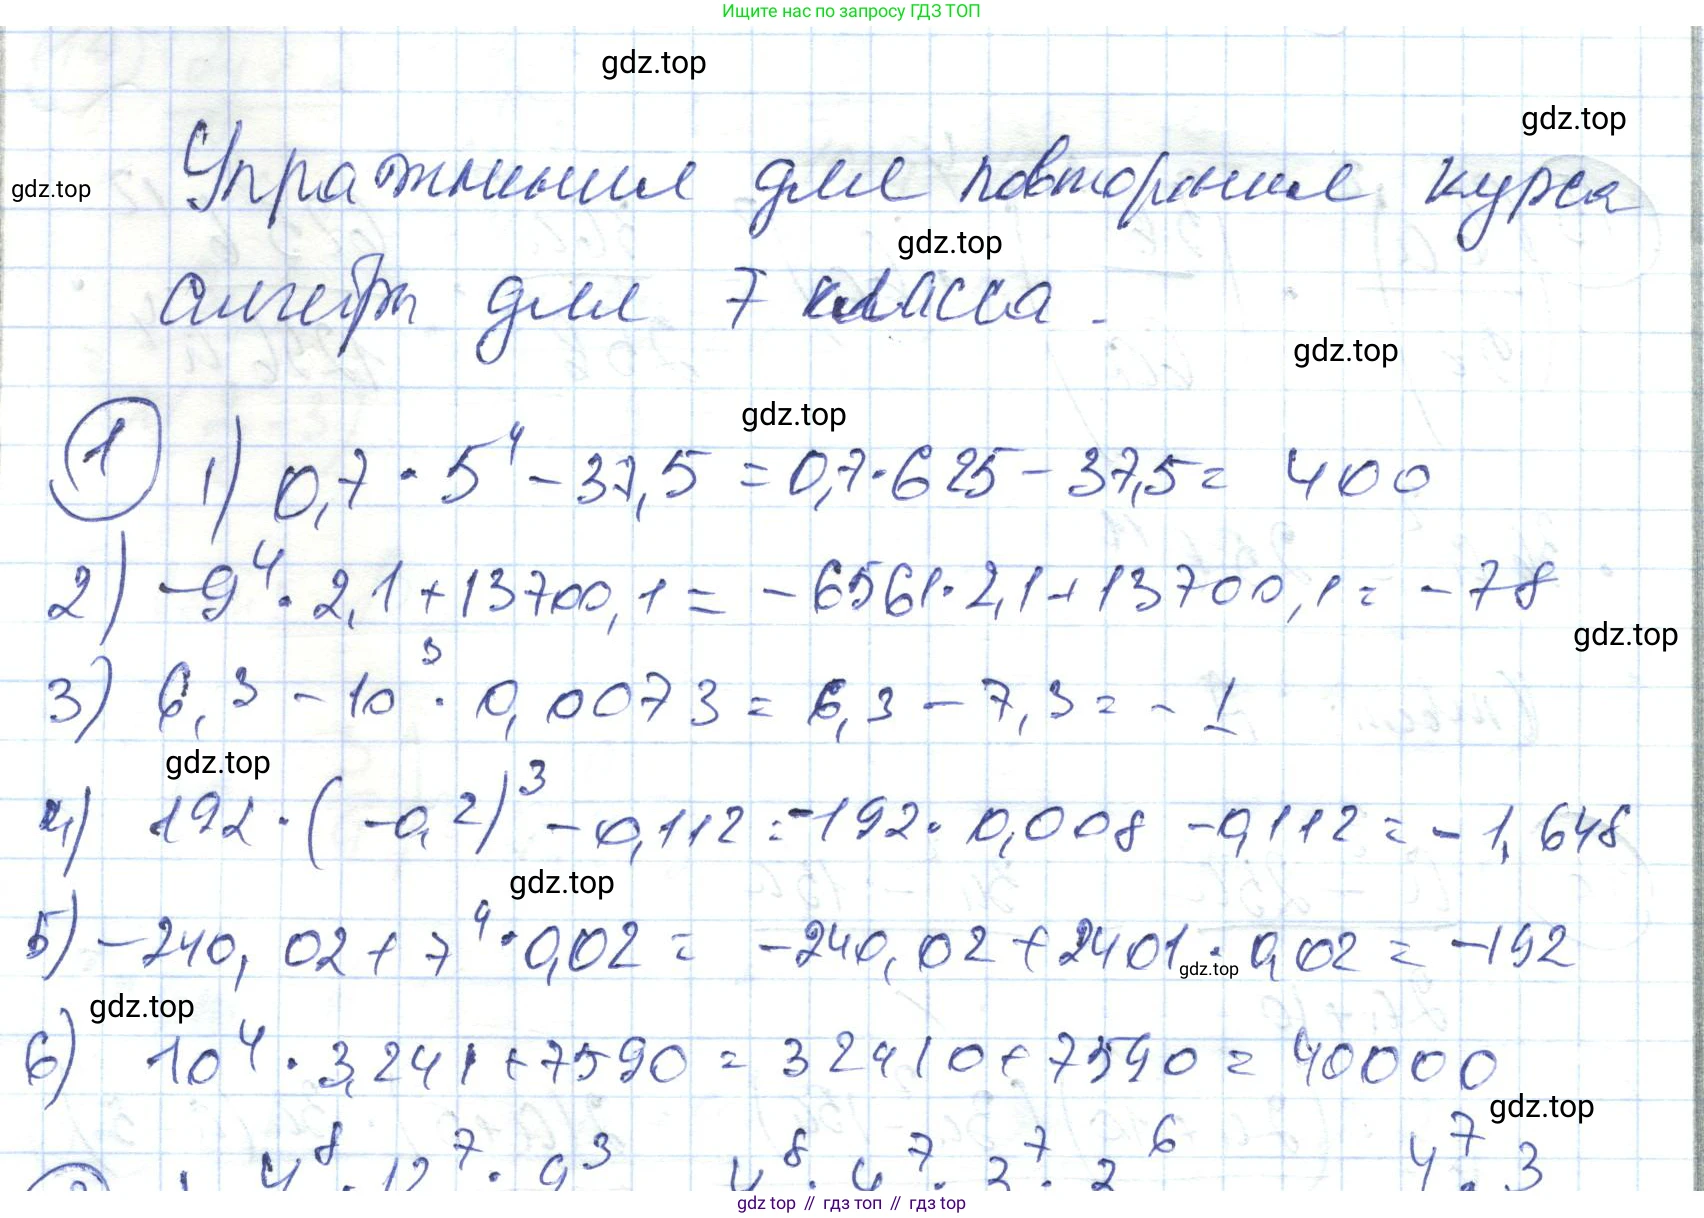 Ищите нас по запросу ГДЗ ТОП
gdz.top
gdz.top
gdz.top
Упражнения для повторения курса
gdz.top
алгебры для 7 класса.
gdz.top
gdz.top
1 1) 0,7 · 5⁴ - 37,5 = 0,7 · 625 - 37,5 = 400
2) -9⁴ · 2,1 + 13700,1 = -6561 · 2,1 + 13700,1 = -78
gdz.top
3) 6,3 - 10³ · 0,0073 = 6,3 - 7,3 = -1
gdz.top
4) 192 · (-0,2)³ - 0,112 = -192 · 0,008 - 0,112 = -1,648
gdz.top
5) -240,02 + 7⁴ · 0,02 = -240,02 + 2401 · 0,02 = -192
gdz.top
gdz.top
6) 10⁴ · 3,241 + 7590 = 32410 + 7590 = 40000
gdz.top
gdz top // гдз топ // gdz top